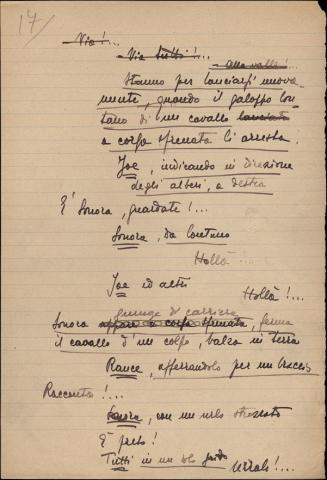 17/
- Via!...
- Via tutti!...
- Alla valle!...
Stanno per lanciarsi nuova-
mente, quando il galoppo lon-
tano di un cavallo lanciato
a corsa sfrenata li arresta.
Joe, indicando in direzione
degli alberi, a destra
È Sonora, guardate!...
Sonora, da lontano
Hollà!...
Joe ed altri
Hollà!...
giunge di carriera
Sonora appare a corsa sfrenata, ferma
il cavallo d'un colpo, balza in terra
Rance, afferrandolo per un braccio
Racconta!...
Sonora, con un urlo strozzato
È preso!
Tutti in un solo grido
Urrah!...